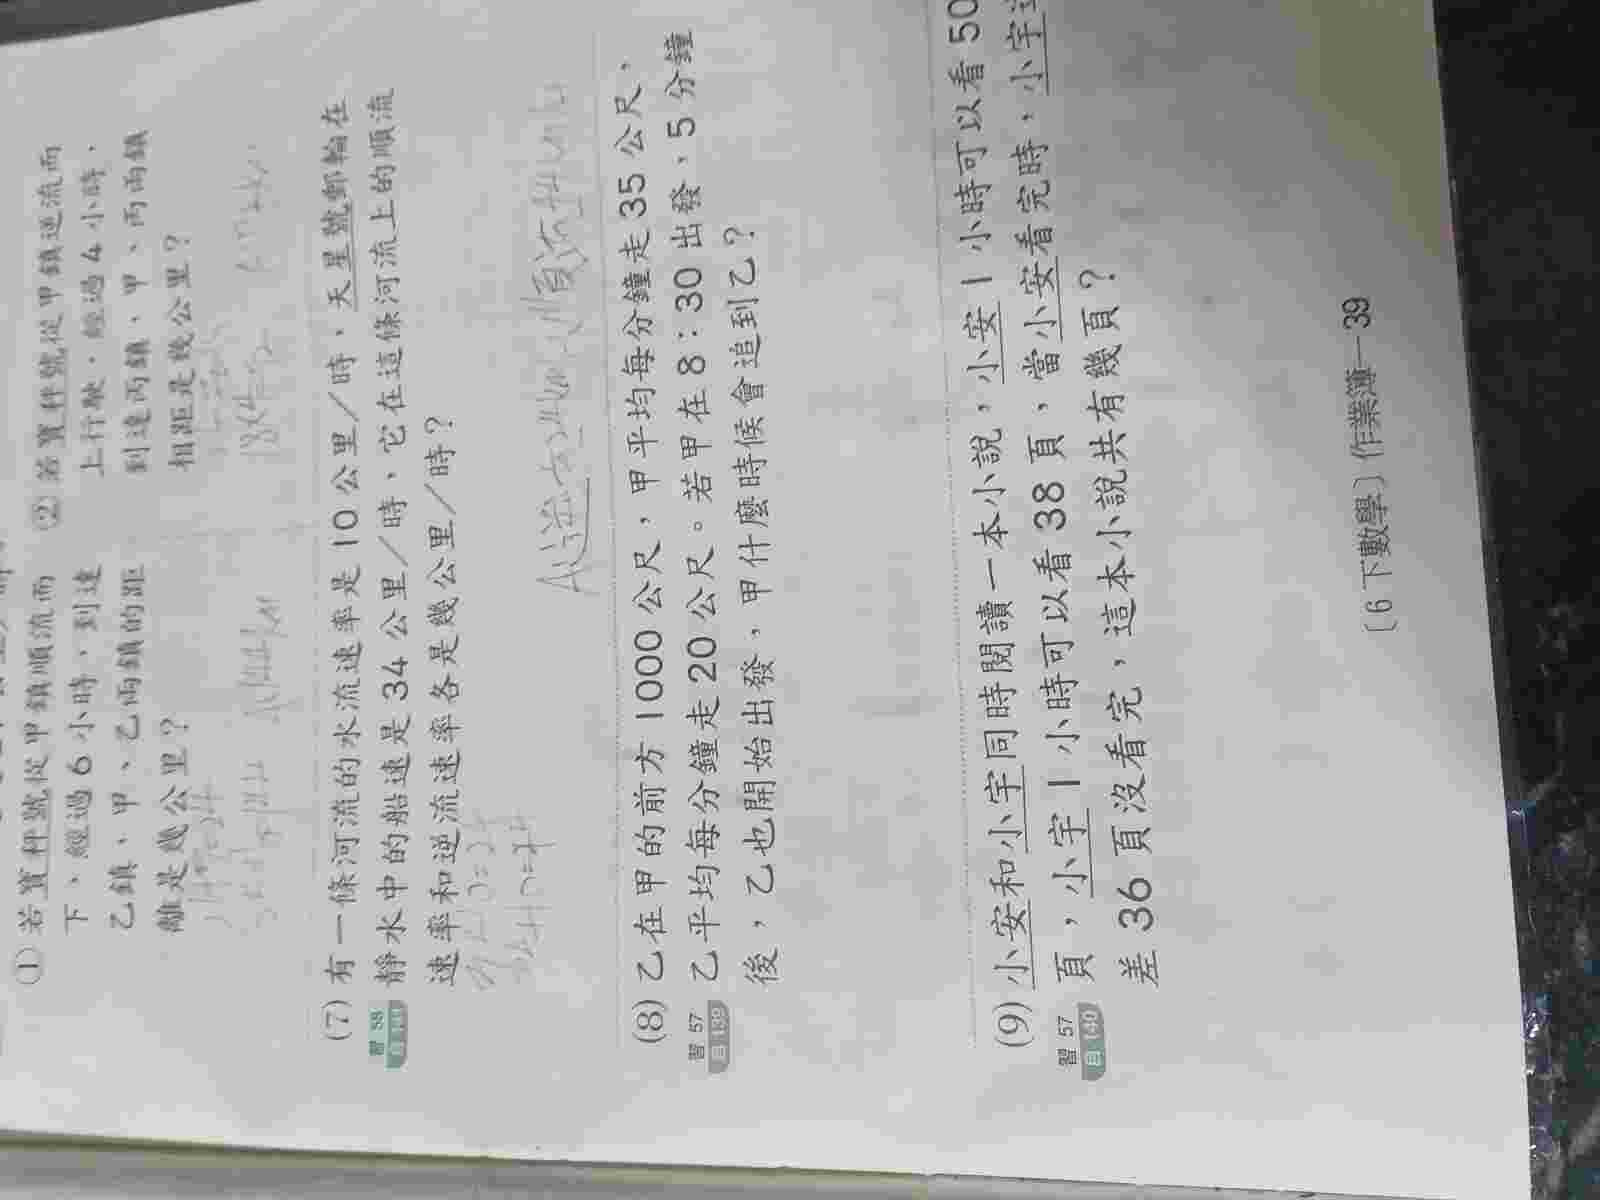 ① 若寶秤號從甲鎮順流而
下，經過6小時，到達
乙鎮，甲、乙兩鎮的距
離是幾公里？
② 若寶秤號從甲鎮逆流而
上行駛，經過4小時，
到達丙鎮，甲、丙兩鎮
相距是幾公里？
(7) 有一條河流的水流速率是10公里／時，天星號郵輪在
習 58
靜水中的船速是34公里／時，它在這條河流上的順流
速率和逆流速率各是幾公里／時？
34+10=44
(8) 乙在甲的前方1000公尺，甲平均每分鐘走35公尺，
習 57
自 139
乙平均每分鐘走20公尺。若甲在8：30出發，5分鐘
後，乙也開始出發，甲什麼時候會追到乙？
(9) 小安和小宇同時閱讀一本小說，小安1小時可以看50
習 57
自 140
頁，小宇1小時可以看38頁，當小安看完時，小宇
差36頁沒看完，這本小說共有幾頁？
〔6下數學〕作業簿—39